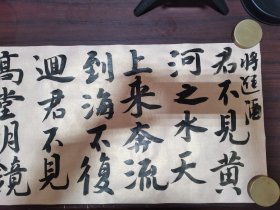 將進酒
君不見黃
河之水天
上来奔流
到海不復
迴君不見
高堂明鏡